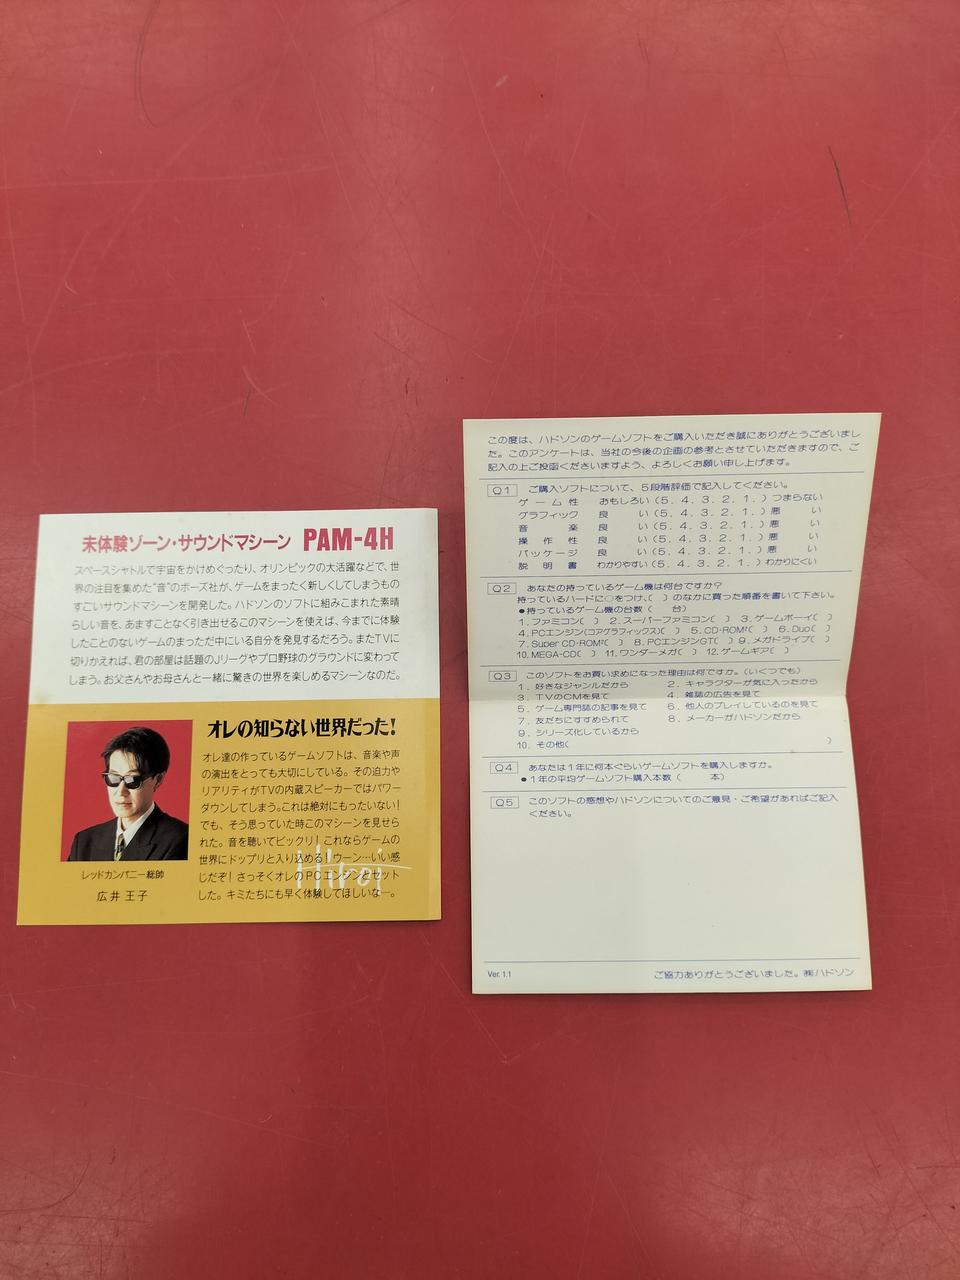 未体験ゾーン・サウンドマシーン PAM-4H
スペースシャトルで宇宙をかけめぐったり、オリンピックの大活躍などで、世
界の注目を集めた"音"のボーズ社が、ゲームをまったく新しくしてしまうもの
すごいサウンドマシーンを開発した。ハドソンのソフトに組みこまれた素晴
らしい音を、あますことなく引き出せるこのマシーンを使えば、今までに体験
したことのないゲームのまっただ中にいる自分を発見するだろう。またTVに
切りかえれば、君の部屋は話題のJリーグやプロ野球のグラウンドに変わって
しまう。お父さんやお母さんと一緒に驚きの世界を楽しめるマシーンなのだ。
オレの知らない世界だった!
オレ達の作っているゲームソフトは、音楽や声
の演出をとっても大切にしている。その迫力や
リアリティがTVの内蔵スピーカーではパワー
ダウンしてしまう。これは絶対にもったいない!
でも、そう思っていた時このマシーンを見せら
れた。音を聴いてビックリ!これならゲームの
世界にドップリと入り込める!ウーン…いい感
じだぞ!さっそくオレのPCエンジンとセット
した。キミたちにも早く体験してほしいなー。
Hiroi
レッドカンパニー総帥
広井 王子
この度は、ハドソンのゲームソフトをご購入いただき誠にありがとうございまし
た。このアンケートは、当社の今後の企画の参考とさせていただきますので、ご
記入の上ご投函くださいますよう、よろしくお願い申し上げます。
Q1 ご購入ソフトについて、5段階評価で記入してください。
ゲーム性 おもしろい(5. 4. 3. 2. 1.)つまらない
グラフィック 良い(5. 4. 3. 2. 1.)悪い
音楽 良い(5. 4. 3. 2. 1.)悪い
操作性 良い(5. 4. 3. 2. 1.)悪い
パッケージ 良い(5. 4. 3. 2. 1.)悪い
説明書 わかりやすい(5. 4. 3. 2. 1.)わかりにくい
Q2 あなたの持っているゲーム機は何台ですか?
持っているハードに○をつけ、( )のなかに買った順番を書いて下さい。
●持っているゲーム機の台数( 台)
1. ファミコン( ) 2. スーパーファミコン( ) 3. ゲームボーイ( )
4. PCエンジン(コアグラフィックス)( ) 5. CD-ROM²( ) 6. Duo( )
7. Super CD-ROM²( ) 8. PCエンジンGT( ) 9. メガドライブ( )
10. MEGA-CD( ) 11. ワンダーメガ( ) 12. ゲームギア( )
Q3 このソフトをお買い求めになった理由は何ですか。(いくつでも)
1. 好きなジャンルだから 2. キャラクターが気に入ったから
3. TVのCMを見て 4. 雑誌の広告を見て
5. ゲーム専門誌の記事を見て 6. 他人のプレイしているのを見て
7. 友だちにすすめられて 8. メーカーがハドソンだから
9. シリーズ化しているから
10. その他( )
Q4 あなたは1年に何本ぐらいゲームソフトを購入しますか。
●1年の平均ゲームソフト購入本数( 本)
Q5 このソフトの感想やハドソンについてのご意見・ご希望があればご記入
ください。
Ver. 1.1 ご協力ありがとうございました。㈱ハドソン